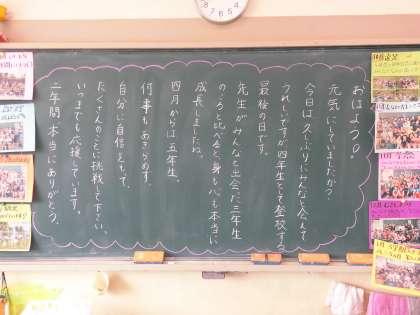 おはよう。
元気にしていましたか？
今日は久しぶりにみんなと会えて
うれしいですが四年生として登校する
最後の日です。
先生がみんなと出会った三年生
のころと比べると身も心も本当に
成長しましたね。
四月からは五年生。
何事もあきらめず、
自分に自信をもって、
たくさんのことに挑戦して下さい。
いつまでも応援しています。
二年間本当にありがとう。